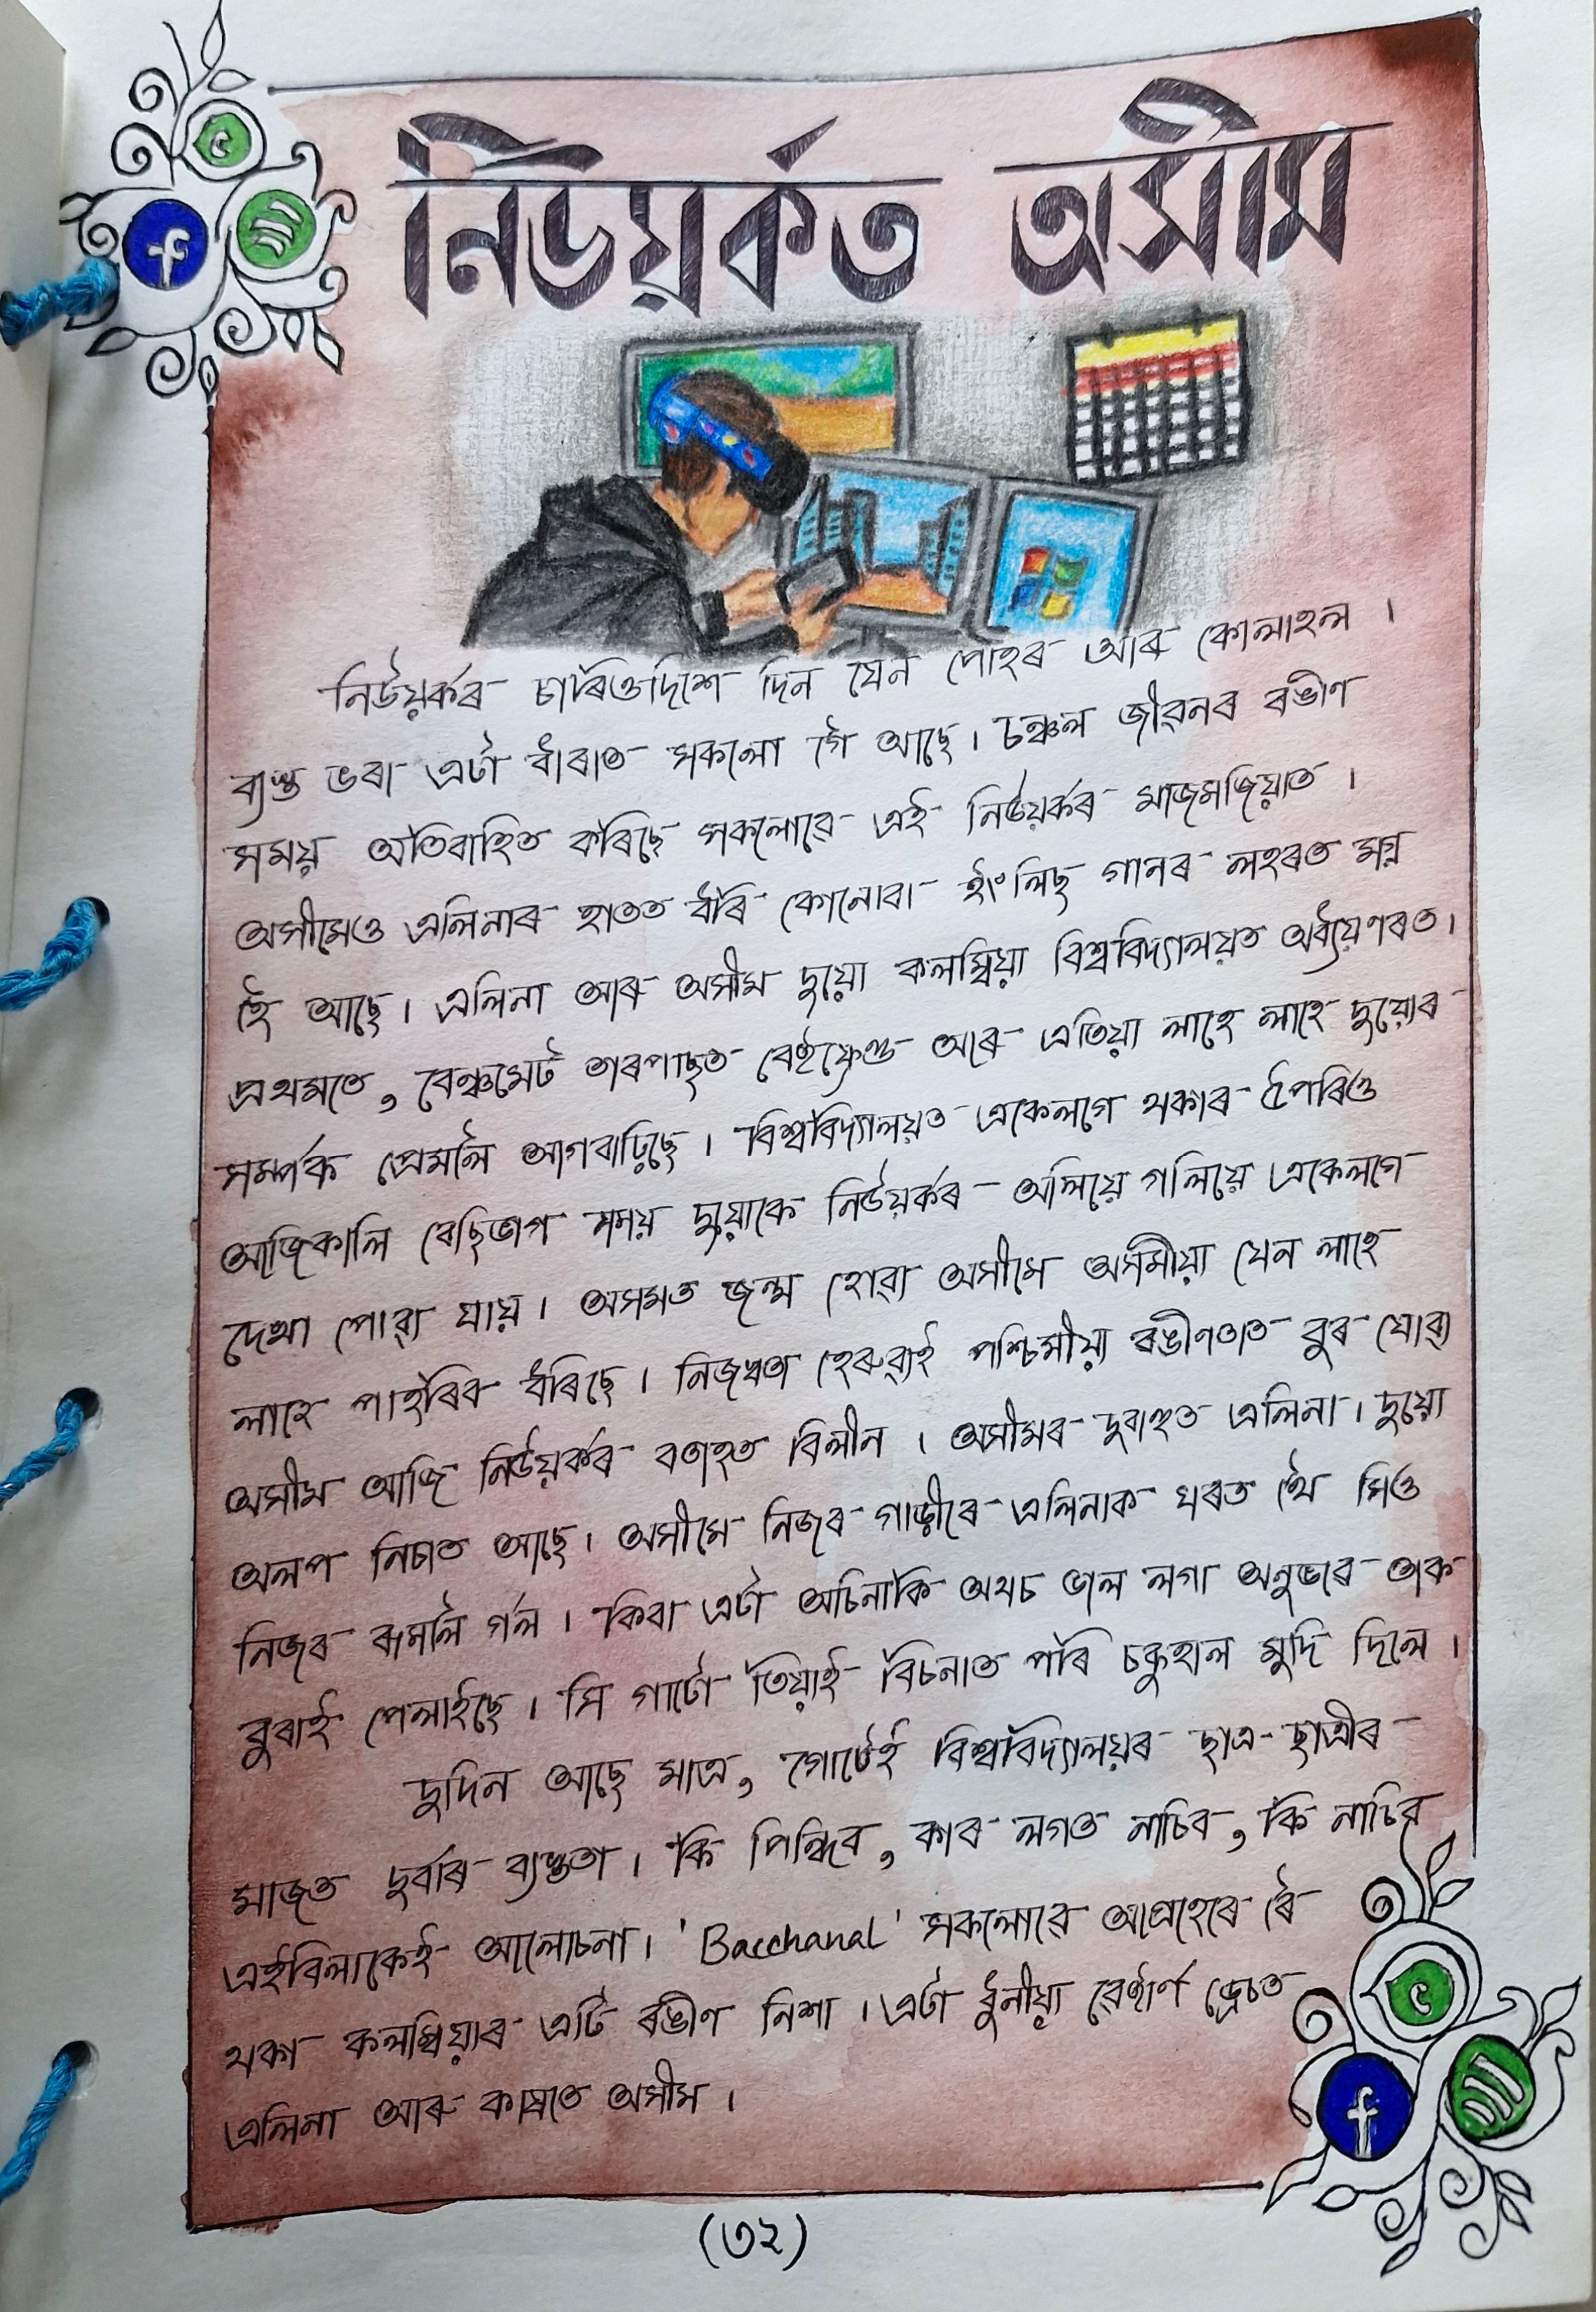 নিউয়ৰ্কত অসীম
নিউয়ৰ্কৰ চাৰিওদিশে দিন যেন পোহৰ আৰু কোলাহল ।
ব্যস্ত ভৰা এটা ধাৰাত সকলো গৈ আছে। চঞ্চল জীৱনৰ ৰঙীণ
সময় অতিবাহিত কৰিছে সকলোৱে এই নিউয়ৰ্কৰ মাজমজিয়াত ।
অসীমেও এলিনাৰ হাতত ধৰি কোনোবা ইংলিছ গানৰ লহৰত মগ্ন
হৈ আছে। এলিনা আৰু অসীম দুয়ো কলম্বিয়া বিশ্ববিদ্যালয়ত অধ্যয়ণৰত।
প্ৰথমতে, বেঞ্চমেট তাৰপাছত বেষ্টফ্ৰেণ্ড আৰু এতিয়া লাহে লাহে দুয়োৰ
সম্পৰ্ক প্ৰেমলৈ আগবাঢ়িছে। বিশ্ববিদ্যালয়ত একেলগে থকাৰ উপৰিও
আজিকালি বেছিভাগ সময় দুয়োকে নিউয়ৰ্কৰ অলিয়ে গলিয়ে একেলগে
দেখা পোৱা যায়। অসমত জন্ম হোৱা অসীমে অসমীয়া যেন লাহে
লাহে পাহৰিব ধৰিছে। নিজস্বতা হেৰুৱাই পশ্চিমীয়া ৰঙীণতাত বুৰ যোৱা
অসীম আজি নিউয়ৰ্কৰ বতাহত বিলীন । অসীমৰ দুবাহুত এলিনা। দুয়ো
অলপ নিচাত আছে। অসীমে নিজৰ গাড়ীৰে এলিনাক ঘৰত থৈ সিও
নিজৰ ৰূমলৈ গ'ল । কিবা এটা অচিনাকি অথচ ভাল লগা অনুভৱে তাক
বুৰাই পেলাইছে। সি গাটো তিয়াই বিচনাত পৰি চকুহাল মুদি দিলে।
দুদিন আছে মাত্ৰ, গোটেই বিশ্ববিদ্যালয়ৰ ছাত্ৰ-ছাত্ৰীৰ
মাজত দুৰ্বাৰ ব্যস্ততা। কি পিন্ধিব, কাৰ লগত নাচিব, কি নাচিব
এইবিলাকেই আলোচনা। 'Bacchanal' সকলোৱে আগ্ৰহেৰে ৰৈ
থকা কলম্বিয়াৰ এটি ৰঙীণ নিশা । এটা ধুনীয়া ৱেষ্টাৰ্ণ ড্ৰেচত
এলিনা আৰু কাষতে অসীম ।
(৩২)